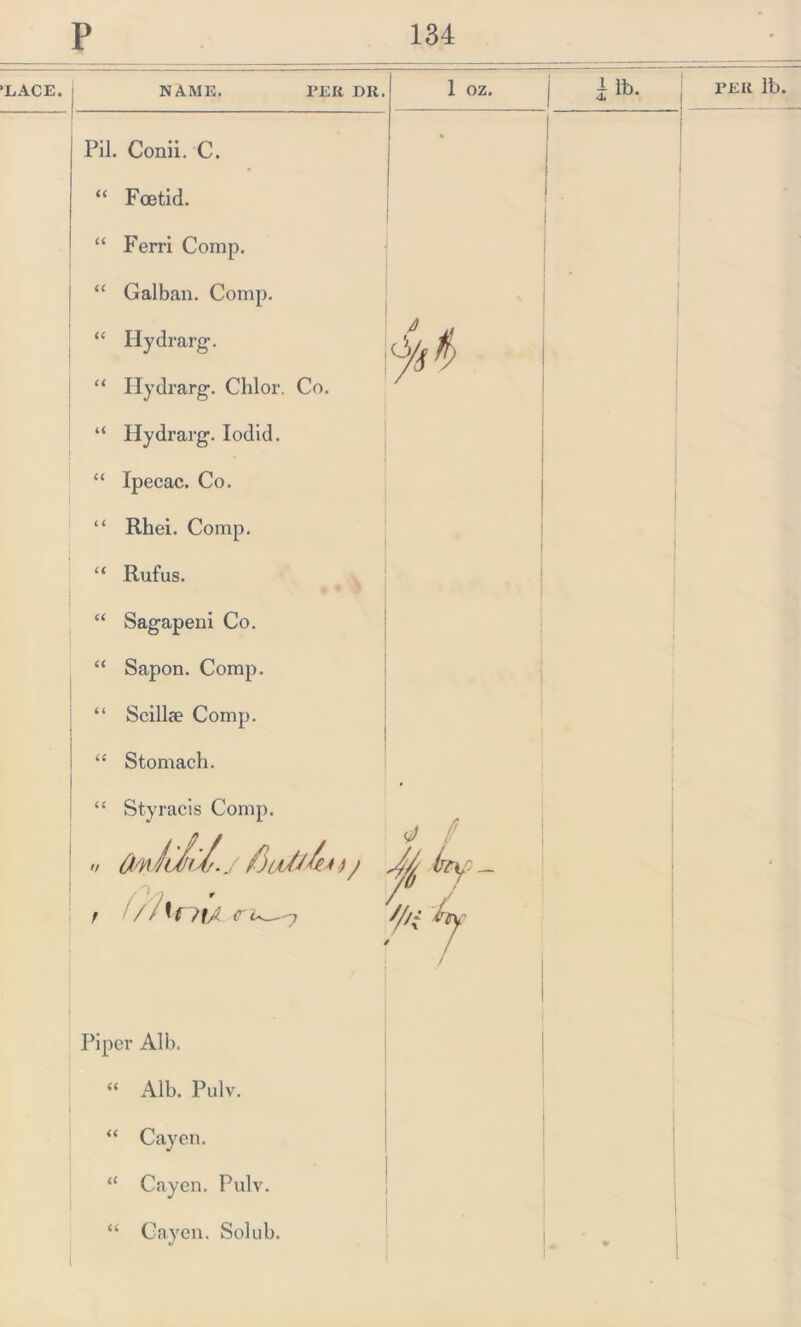 P 134
LACE. NAME. PER DR. 1 oz. ¼ lb. PER lb.
Pil. Conii. C.
“ Fœtid.
“ Ferri Comp.
“ Galban. Comp.
“ Hydrarg.
“ Hydrarg. Chlor. Co.
“ Hydrarg. Iodid.
“ Ipecac. Co.
“ Rhei. Comp.
“ Rufus.
“ Sagapeni Co.
“ Sapon. Comp.
“ Scillæ Comp.
“ Stomach.
“ Styracis Comp.
"
Piper Alb.
“ Alb. Pulv.
“ Cayen.
“ Cayen. Pulv.
“ Cayen. Solub.